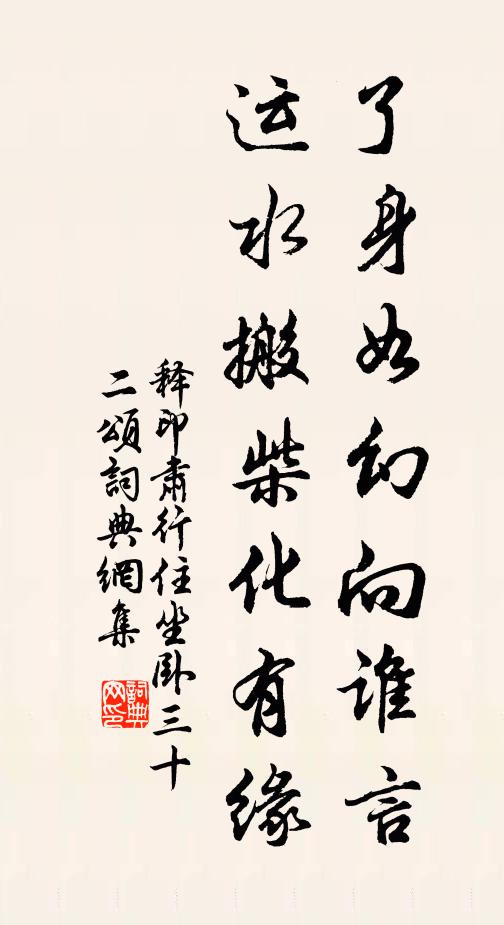 了身如幻向谁言
运水搬柴化有缘
释印肃行住坐卧三十
二颂词典網集
詞典
网印